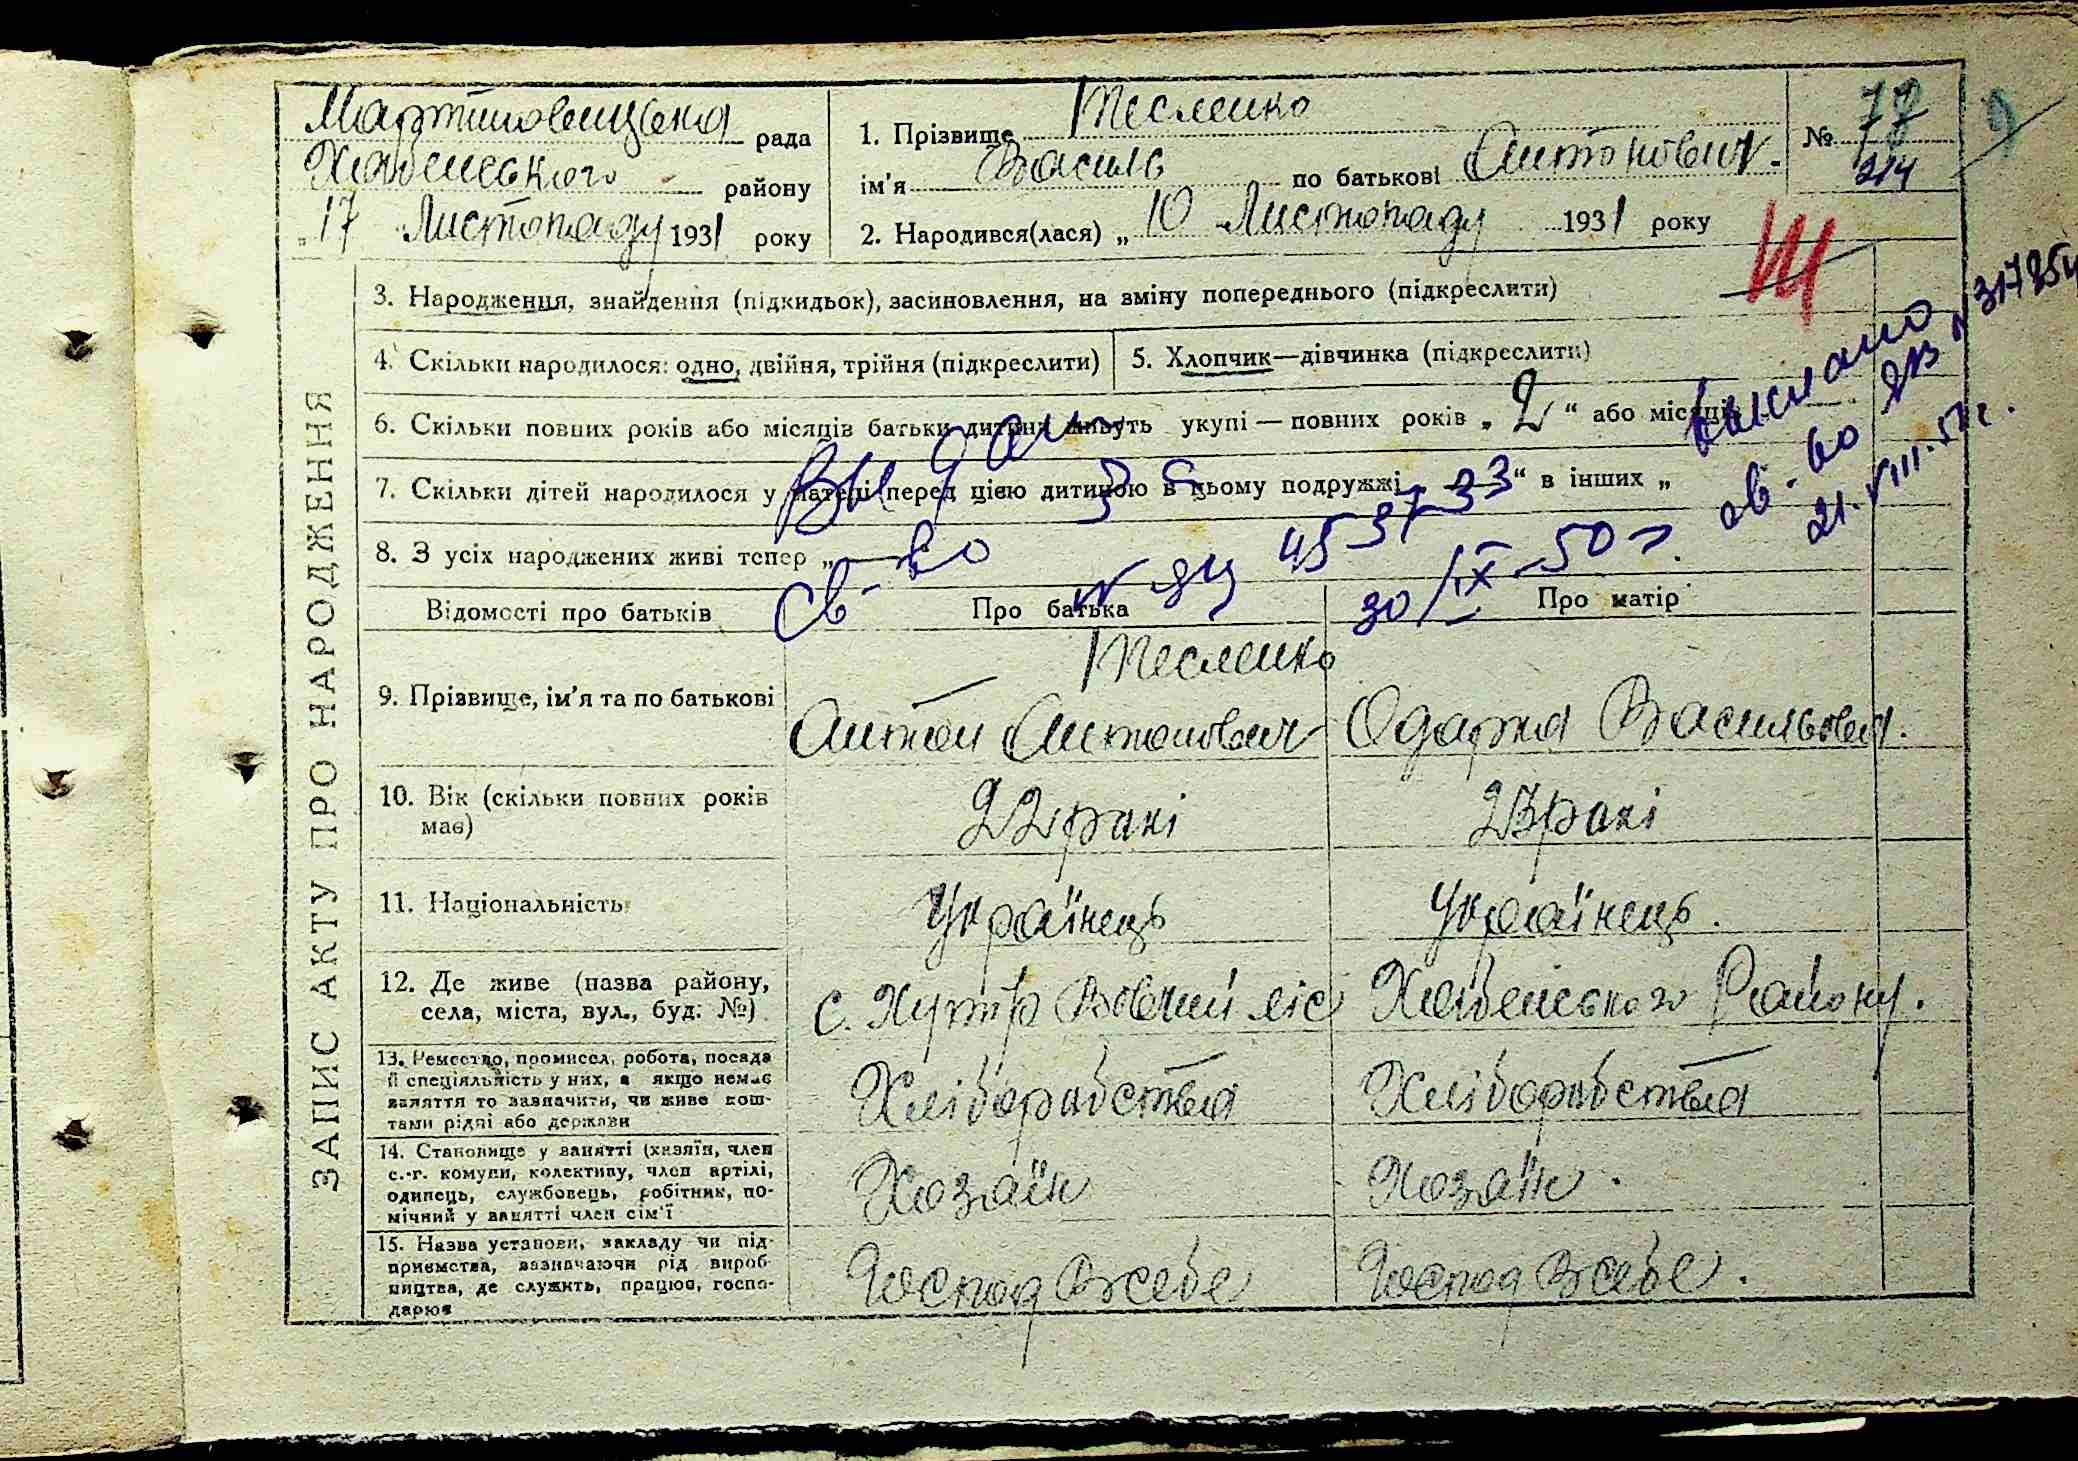 Мартиновецька рада
Хабенського району
„17 Листопаду 1931 року
1. Прізвище Тесленко
ім'я Василь по батькові Антонович.
2. Народився(лася) „10 Листопаду 1931 року
№ 77
214
3. Народження, знайдення (підкидьок), засиновлення, на зміну попереднього (підкреслити)
4. Скільки народилося: одно, двійня, трійня (підкреслити)
5. Хлопчик—дівчинка (підкреслити)
6. Скільки повних років або місяців батьки дитини живуть укупі — повних років „2“ або місяців
7. Скільки дітей народилося у матері перед цією дитиною в цьому подружжі „—“ в інших „
8. З усіх народжених живі тепер „—
Св-во
30/IX-50 г.
выслано
св-во
21.VIII.57 г.
ЗАПИС АКТУ ПРО НАРОДЖЕННЯ
Відомості про батьків Про батька Про матір
Тесленко
9. Прізвище, ім'я та по батькові Антон Антонович Одарка Васильовна.
10. Вік (скільки повних років має) 22 рокі 23 рокі
11. Національність Українець Українець.
12. Де живе (назва району, села, міста, вул., буд. №) с. Хутір Вовчий ліс Хабенського Району.
13. Ремество, промисел, робота, посада й спеціяльність у них, а якщо немає заняття то зазначити, чи живе коштами рідні або держави Хліборобства Хліборобства
14. Становище у занятті (хазяїн, член с.-г. комуни, колективу, член артілі, одинець, службовець, робітник, помічний у занятті член сім'ї Хозаїн Хозаїн.
15. Назва установи, закладу чи підприємства, зазначаючи рід виробництва, де служить, працює, господарює Господ Всебе Господ Всебе.